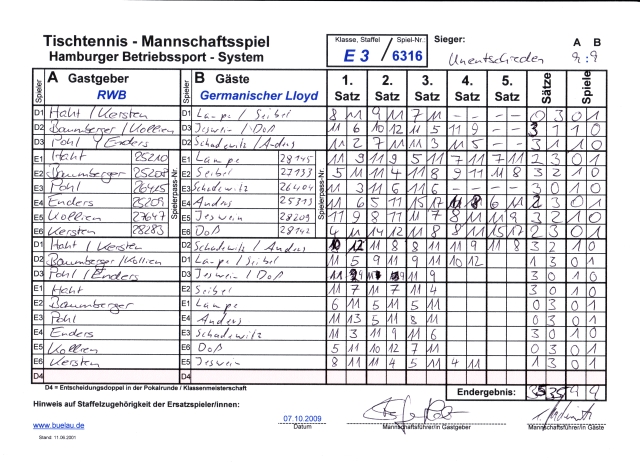 Tischtennis - Mannschaftsspiel
Hamburger Betriebssport - System
Klasse, Staffel Spiel-Nr.:
E 3 / 6316
Sieger:
Unentschieden
A B
9 : 9
Spieler A Gastgeber Spieler B Gäste 1. 2. 3. 4. 5. Sätze Spiele
RWB Germanischer Lloyd Satz Satz Satz Satz Satz
D1 Haht / Kersten D1 Lampe / Seibel 8 11 9 11 7 11 - - - - 0 3 0 1
D2 Baumberger / Kollien D2 Jeswein / Doß 11 6 10 12 11 5 11 9 - - 3 1 1 0
D3 Pohl / Enders D3 Schadewitz / Anders 11 2 7 11 11 3 11 5 - - 3 1 1 0
Spielerpass-Nr. Spielerpass-Nr.
E1 Haht 25210 E1 Lampe 28145 11 9 11 9 5 11 7 11 7 11 2 3 0 1
E2 Baumberger 25208 E2 Seibel 27133 5 11 11 4 11 8 9 11 11 8 3 2 1 0
E3 Pohl 26415 E3 Schadewitz 26404 11 3 11 6 11 6 - - - - 3 0 1 0
E4 Enders 25209 E4 Anders 25313 11 6 5 11 15 17 11 8 6 11 2 3 0 1
E5 Kollien 27647 E5 Jeswein 28209 11 9 8 11 11 7 8 11 11 9 3 2 1 0
E6 Kersten 28283 E6 Doß 28142 4 11 14 12 11 8 8 11 15 17 2 3 0 1
D1 Haht / Kersten D2 Schadewitz / Anders 10 12 11 8 8 11 11 9 11 8 3 2 1 0
D2 Baumberger / Kollien D1 Lampe / Seibel 11 5 9 11 9 11 10 12 1 3 0 1
D3 Pohl / Enders D3 Jeswein / Doß 11 9 11 9 11 9 3 0 1 0
E1 Haht E2 Seibel 11 7 11 7 11 4 3 0 1 0
E2 Baumberger E1 Lampe 6 11 5 11 5 11 0 3 0 1
E3 Pohl E4 Anders 11 13 5 11 8 11 0 3 0 1
E4 Enders E3 Schadewitz 11 3 11 9 11 6 3 0 1 0
E5 Kollien E6 Doß 5 11 10 12 7 11 0 3 0 1
E6 Kersten E5 Jeswein 8 11 11 4 5 11 4 11 1 3 0 1
D4 D4
D4 = Entscheidungsdoppel in der Pokalrunde / Klassenmeisterschaft
Endergebnis: 35 35 9 9
Hinweis auf Staffelzugehörigkeit der Ersatzspieler/innen:
www.buelau.de
07.10.2009
Datum Mannschaftsführer/in Gastgeber Mannschaftsführer/in Gäste
Stand: 11.06.2001